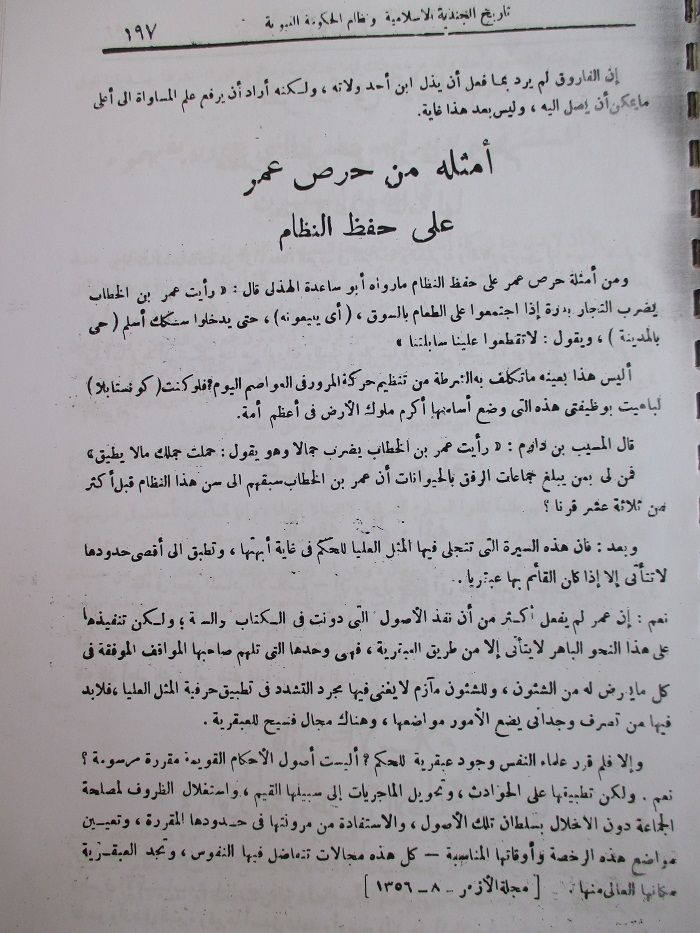 تاريخ الجندية الاسلامية ونظام الحكومة النبوية
١٩٧
إن الفاروق لم يرد بما فعل أن يذل ابن أحد ولاته ، ولكنه أراد أن يرفع علم المساواة الى أعلى
مايمكن أن يصل اليه ، وليس بعد هذا غاية.
أمثله من حرص عمر
على حفظ النظام
ومن أمثلة حرص عمر على حفظ النظام مارواه أبو ساعدة الهذلى قال : « رأيت عمر بن الخطاب
يضرب التجار بدرة إذا اجتمعوا على الطعام بالسوق ، ( أى يبيعونه ) ، حتى يدخلوا سكك أسلم ( حى
بالمدينة ) ، ويقول : لاتقطعوا علينا سابلتنا »
أليس هذا بعينه ماتكلف به الشرطة من تنظيم حركة المرور فى العواصم اليوم؟ فلو كنت ( كونستابلا )
لباهيت بوظيفتى هذه التى وضع أساسها أكرم ملوك الأرض فى أعظم أمة.
قال المسيب بن دارم : « رأيت عمر بن الخطاب يضرب جمالا وهو يقول : حملت جملك مالا يطيق »
فمن لى بمن يبلغ جماعات الرفق بالحيوانات أن عمر بن الخطاب سبقهم الى سن هذا النظام قبل أكثر
من ثلاثة عشر قرنا ؟
وبعد : فان هذه السيرة التى تتجلى فيها المثل العليا للحكم فى غاية أبهتها ، وتطبق الى أقصى حدودها
لاتتأتى إلا إذا كان القائم بها عبقريا .
نعم : إن عمر لم يفعل أكثر من أن نفذ الأصول التى دونت فى الكتاب والسنة ، ولكن تنفيذها
على هذا النحو الباهر لايتأتى إلا من طريق العبقرية ، فهى وحدها التى تلهم صاحبها المواقف الموفقة فى
كل مايعرض له من الشئون ، وللشئون مآزم لايغنى فيها مجرد التشدد فى تطبيق حرفية المثل العليا ، فلابد
فيها من تصرف وجدانى يضع الأمور مواضعها ، وهناك مجال فسيح للعبقرية .
وإلا فلم قرر علماء النفس وجود عبقرية للحكم ؟ أليست أصول الأحكام القويمة مقررة مرسومة ؟
نعم . ولكن تطبيقها على الحوادث ، وتحويل الماجريات إلى سبيلها القيم ، واستغلال الظروف لمصلحة
الجماعة دون الاخلال بسلطان تلك الأصول ، والاستفادة من مرونتها فى حدودها المقررة ، وتعيين
مواضع هذه الرخصة وأوقاتها المناسبة — كل هذه مجالات تتفاضل فيها النفوس ، وتجد العبقرية
مكانها العالى منها . [ مجلة الأزهر - ٨ - ١٣٥٦ ]